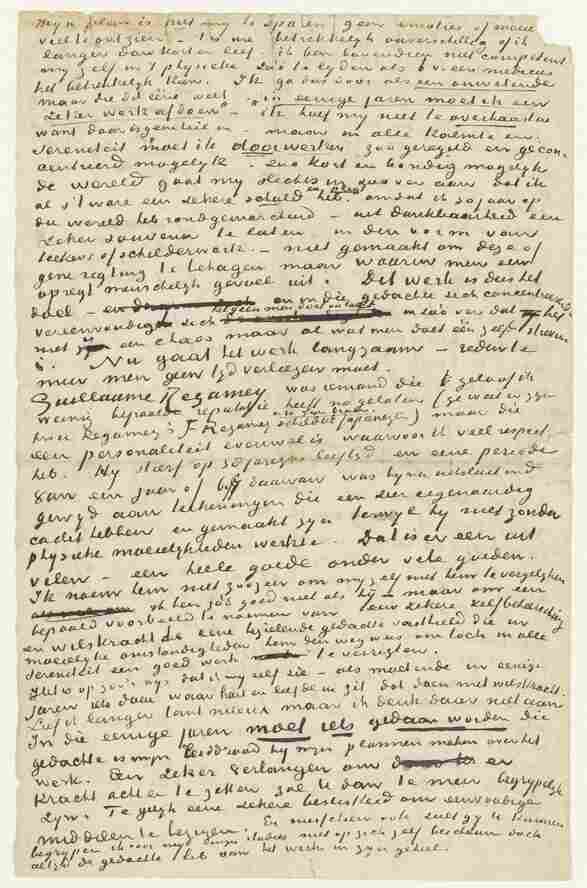 Mijn plan is niet mij te sparen geen emoties of moeite
veel te ontzien – 't is me betrekkelijk onverschillig of ik
langer dan korter leef. ik ben bovendien niet competent
mij zelf in 't physieke zóó te leiden als b.v. een medicus
het betrekkelijk kan. Ik ga dus door als een onwetende
maar die dit eene weet – in eenige jaren moet ik een
zeker werk afdoen – ik hoef mij niet te overhaasten
want daar is geen heil in – maar in alle kalmte en
sereniteit moet ik doorwerken zoo geregeld en gecon-
centreerd mogelijk, zoo kort en bondig mogelijk
de wereld gaat mij slechts in zoover aan dat ik
als 't ware een zekere schuld en pligt heb omdat ik 30 jaar op
die wereld heb rondgemarcheerd – uit dankbaarheid een
zeker souvenir te laten in den vorm van
teeken of schilderwerk – niet gemaakt om deze of
gene rigting te behagen maar waarin men een
opregt menschelijk gevoel uit. Dit werk is dus het
doel – en in die gedachte zich concentreerend
vereenvoudigt zich hetgeen men doet en laat in zóó ver dat het
niet is een chaos maar al wat men doet één zelfde streven
is. Nu gaat het werk langzaam – reden te
meer men geen tijd verliezen moet.
Guillaume Regamey was iemand die geloof ik
weinig bepaald reputatie heeft nagelaten (ge weet er zijn
twee Regamey's, F. Regamey schildert Japanezen) maar die
een personaliteit evenwel is waarvoor ik veel respect
heb. Hij stierf op 38 jarigen leeftijd en eene periode
van een jaar of daarvan was bijna uitsluitend
gewijd aan teekeningen die een zeer eigenaardig
cachet hebben en gemaakt zijn terwijl hij niet zonder
physieke moeielijkheden werkte. Dat is er een uit
velen – een heele goede onder vele goeden.
Ik noem hem niet zoozeer om mij zelf met hem te vergelijken
ik ben zóó goed niet als hij – maar om een
bepaald voorbeeld te noemen van zekere zelfbeheersching
en wilskracht als eene bezielende gedachte vasthield die in
moeielijke omstandigheden hem den weg was om toch in alle
sereniteit een goed werk te verrigten.
Het is op zoo'n wijs dat ik mij zelf zie – als moetende in eenige
jaren iets doen waar hart en liefde in zit dat doen met wilskracht.
Leef ik langer tant mieux maar ik denk daar niet aan
In die eenige jaren moet iets gedaan worden die
gedachte is mijn leiddraad bij mijn plannen maken over het
werk. Een zeker verlangen om er
kracht achter te zetten zal U dan te meer begrijpelijk
zijn. Tegelijk eene zekere beslistheid om eenvoudige
middelen te bezigen. En misschien ook zult gij te kunnen
begrijpen ik voor mijn studies niet op zich zelf beschouw doch
altijd de gedachte heb aan het werk in zijn geheel.